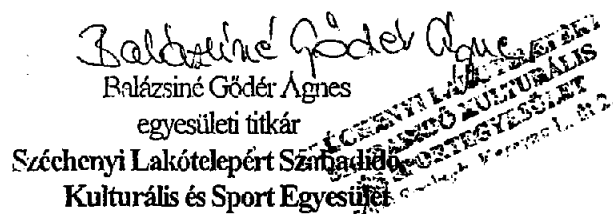 Balázsiné Gödér Ágnes
Balázsiné Gödér Ágnes
egyesületi titkár
Széchenyi Lakótelepért Szabadidő,
Kulturális és Sport Egyesület
SZÉCHENYI LAKÓTELEPÉRT
SZABADIDŐ KULTURÁLIS
SPORTEGYESÜLET